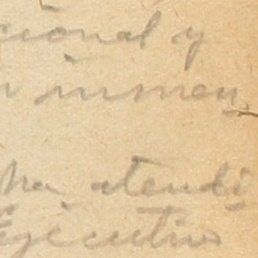 cional y
inmen
ha atendi
Ejecutivo